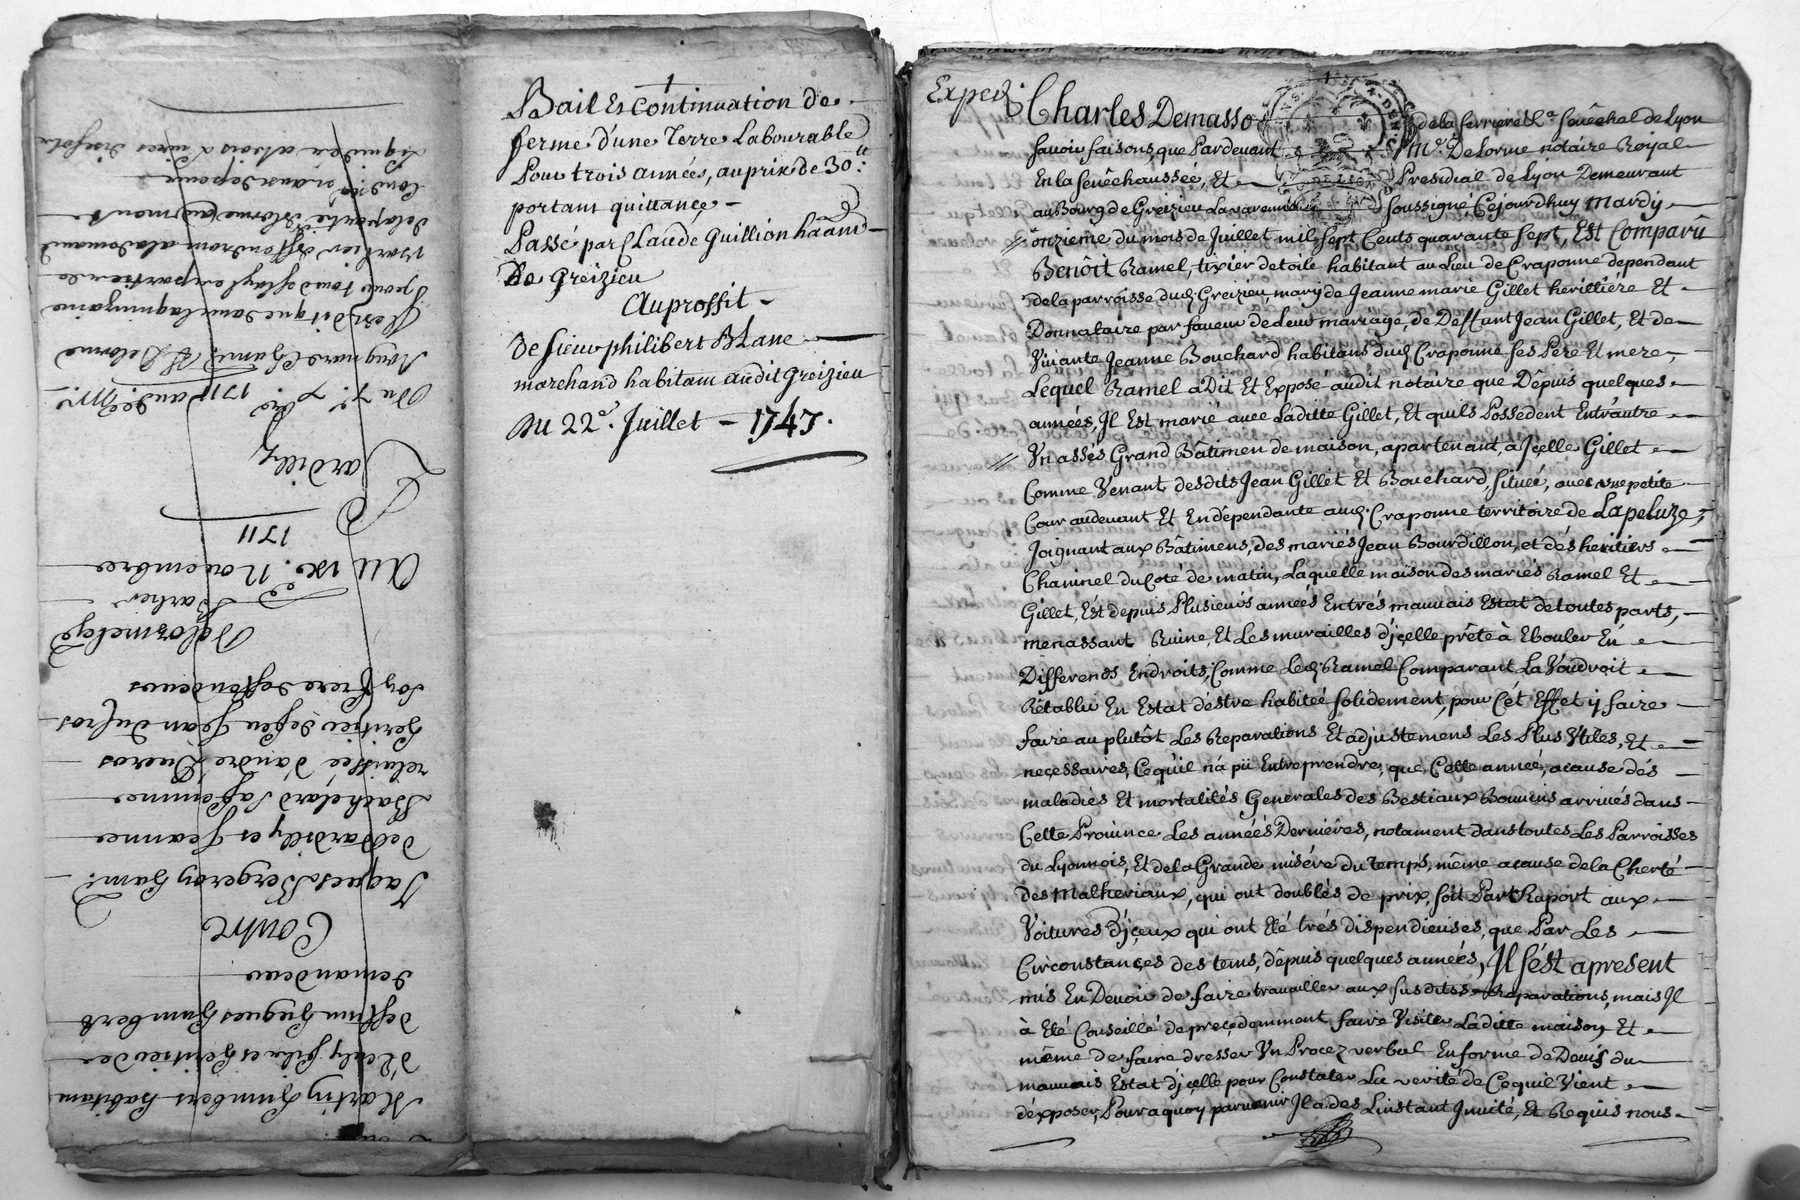 Bail Et Continuation de
ferme d'une Terre Labourable
Pour trois années, au prix de 30.ᵗᵗ
portant quittance
Passé par Claude Guillion ha͠ant
De Greizieu
Auproffit
De sieur philibert BLanc
marchand habitant audit Greizieu
Du 22.ᵉ Juillet - 1747.
Du 7.ᵉ xbre 1711
Delorme
Dardilly
1711
Au 19e. Novembre
Barlier
son frere deffendeurs
heritier de feu Jean dufros
relaissée d'andré Dueros
Bachelard sa femme
de Dardilly et Jeanne
Jaques Bergeron habit.
Contre
demandeur
deffunt hugues humbert
d'Eully fils et heritier de
Martin humbert habitant
Exped.
Charles Demasso de la ferriere Ch.ᵉ Sénéchal de Lyon
Savoir faisons, que Pardevant Mᵉ. DeLorme notaire Royal
En la Senêchaussée, Et Presidial de Lyon Demeurant
au Bourg de Greizieu Lavarenne Soussigné, Cejourdhuy Mardy
onzieme du mois de Juillet mil sept Cents quarante sept, Est Comparû
Benoît Ramel, tixier de toile habitant au Lieu de Craponne dependant
de la parroisse dud. Greizieu, mary de Jeanne marie Gillet herittiére Et
Donnataire par faveur de Leur mariage, de Deffunt Jean Gillet, Et de
Vivante Jeanne Bouchard habitans dud. Craponne ses Pere Et mere,
Lequel Ramel a Dit Et Exposé audit notaire que Dépuis quelques
années, Il Est marié avec Laditte Gillet, Et quils Possedent Entrautre
Vn assés Grand Bâtimen de maison, apartenant, a Jcelle Gillet
Comme Venant desdits Jean Gillet Et Bouchard, située, avec une petite
Cour audevant Et En dépendante aud. Craponne territoire de Lapeluze,
Joignant aux Bâtimens, des mariés Jean Bourdillon, et dés heritiers
Chaninel du Coté de matin, Laquelle maison des mariés Ramel Et
Gillet, Ést depuis Plusieurs années En trés mauvais Estat de toutes parts,
menassant Ruine, Et Les murailles d'jcelle prête à Ebouler En
Differends Endroits, Comme Led. Ramel Comparant La Voudroit
Rétablir En Estat déstre habitée solidement, pour Cét Effet y faire
faire au plutôt Les Reparations Et adjustemens Les Plus Vtiles, Et
neçessaires, Cequil n'a pû Entreprendre, que Cette année, acause dés
maladiés Et mortalités Generales des Bestiaux Bovins arrivés dans
Cette Province Les années Derniéres, notament dans toutes Les Parroisses
du Lyonnois, Et de la Grande misére du temps, même acause de la Cherté
des Malheriaux, qui ont doublés de prix, soit Part Raport aux
Voitures d'jçeux qui ont Eté trés dispendieuses, que Par Les
Circonstançes des tems, dépuis quelques années, Il s'ést apresent
mis En Devoir de faire travailler aux susdittes Reparations, mais Jl
à Eté Conseillé de preçedomment faire Visiter Laditte maison, Et
même de faire dresser Vn Procez verbal En forme de Devis du
mauvais Estat d'jçelle pour Constater La verité de Cequil Vient
déxposer, Pour a quoy parvenir Jl a des L'instant Jnvité, Et Requis nous